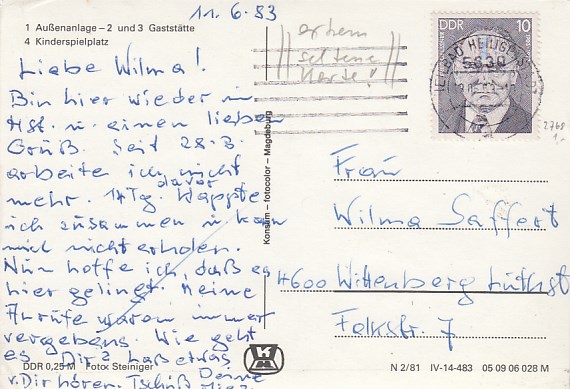 11.6.83
1 Außenanlage – 2 und 3 Gaststätte
4 Kinderspielplatz
Liebe Wilma!
Bin hier wieder in
Hst. u einen lieben
Gruß. Seit 28.3.
arbeite ich nicht
mehr. 14Tg. davor klappte
ich zusammen u kann
mich nicht erholen.
Nun hoffe ich, daß es
hier gelingt. Meine
Anrufe waren immer
vergebens. Wie geht
es Dir? Laß etwas
v. Dir hören. Tschüß Deine
DDR 0,25 M Foto: Steiniger
Konsum – fotocolor – Magdeburg
extrem
seltene
Karte!
DDR 10
5630
HEILBAD HEILIGENSTADT
2768
1.-
Frau
Wilma Saffert
4600 Wittenberg Luthst
Falkstr. 7
N 2/81 IV-14-483 05 09 06 028 M